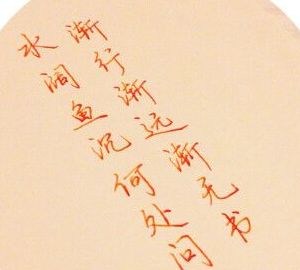 渐行渐远渐无书
水阔鱼沉何处问